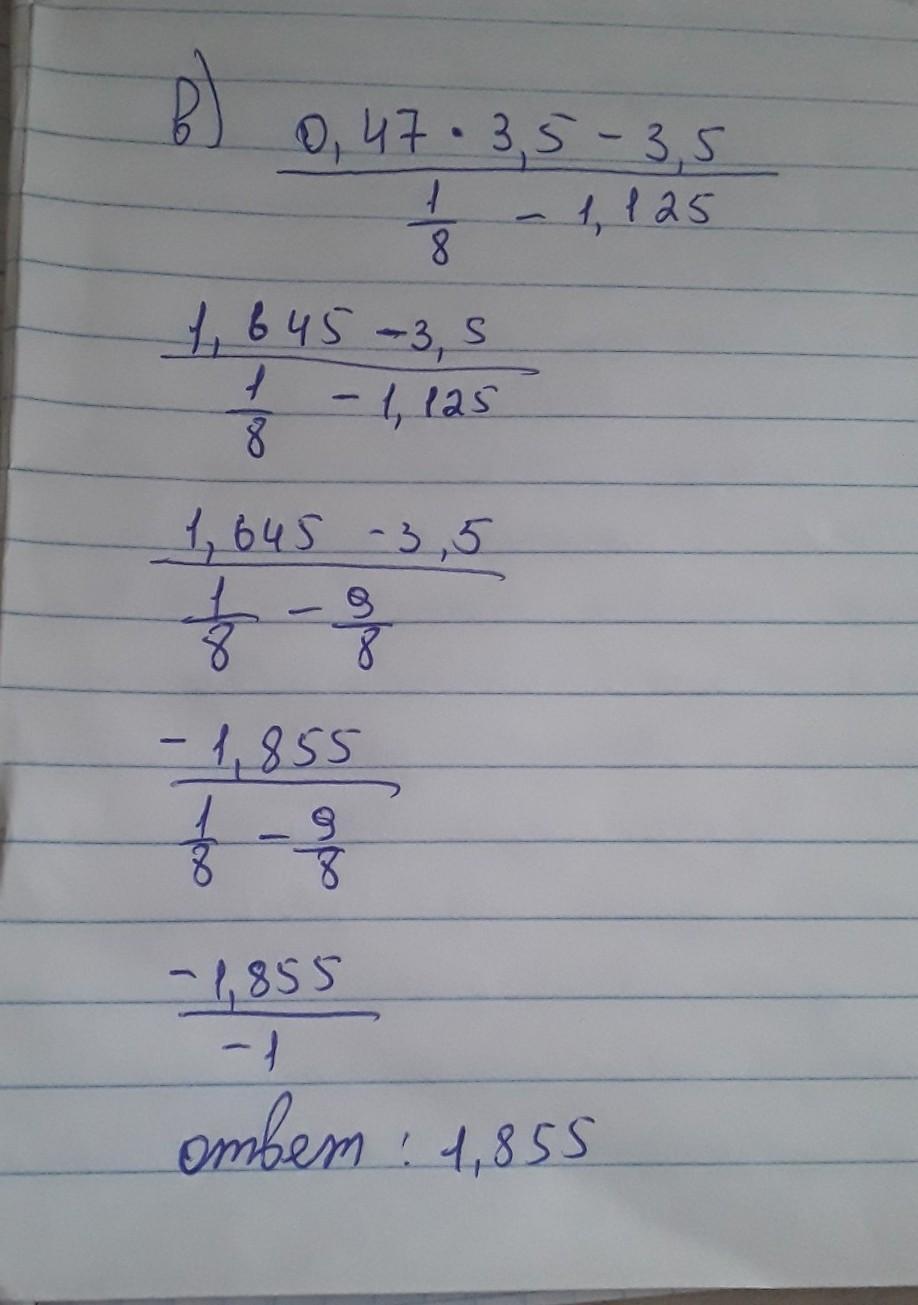 в) 0,47 · 3,5 - 3,5
1/8 - 1,125
1,645 - 3,5
1/8 - 1,125
1,645 - 3,5
1/8 - 9/8
- 1,855
1/8 - 9/8
- 1,855
- 1
ответ : 1,855